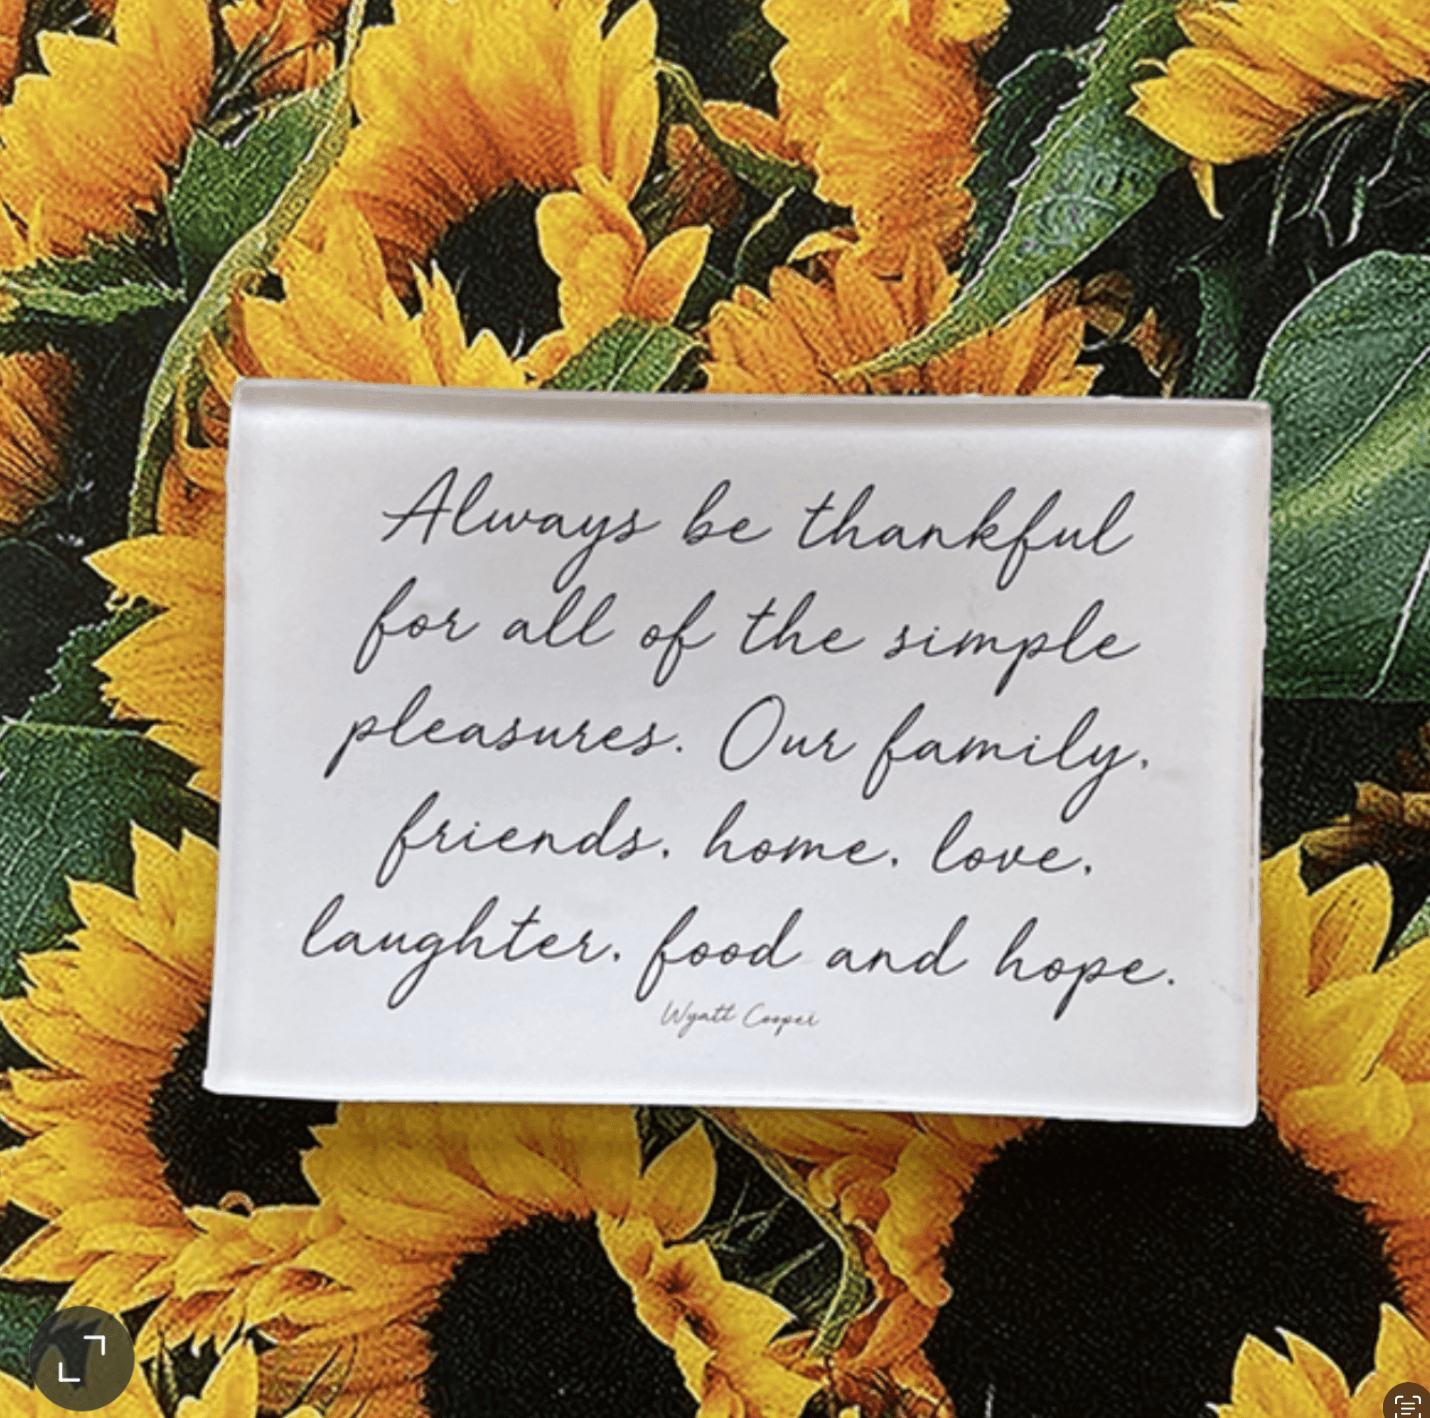 Always be thankful
for all of the simple
pleasures. Our family,
friends, home, love,
laughter, food and hope.
Wyatt Cooper